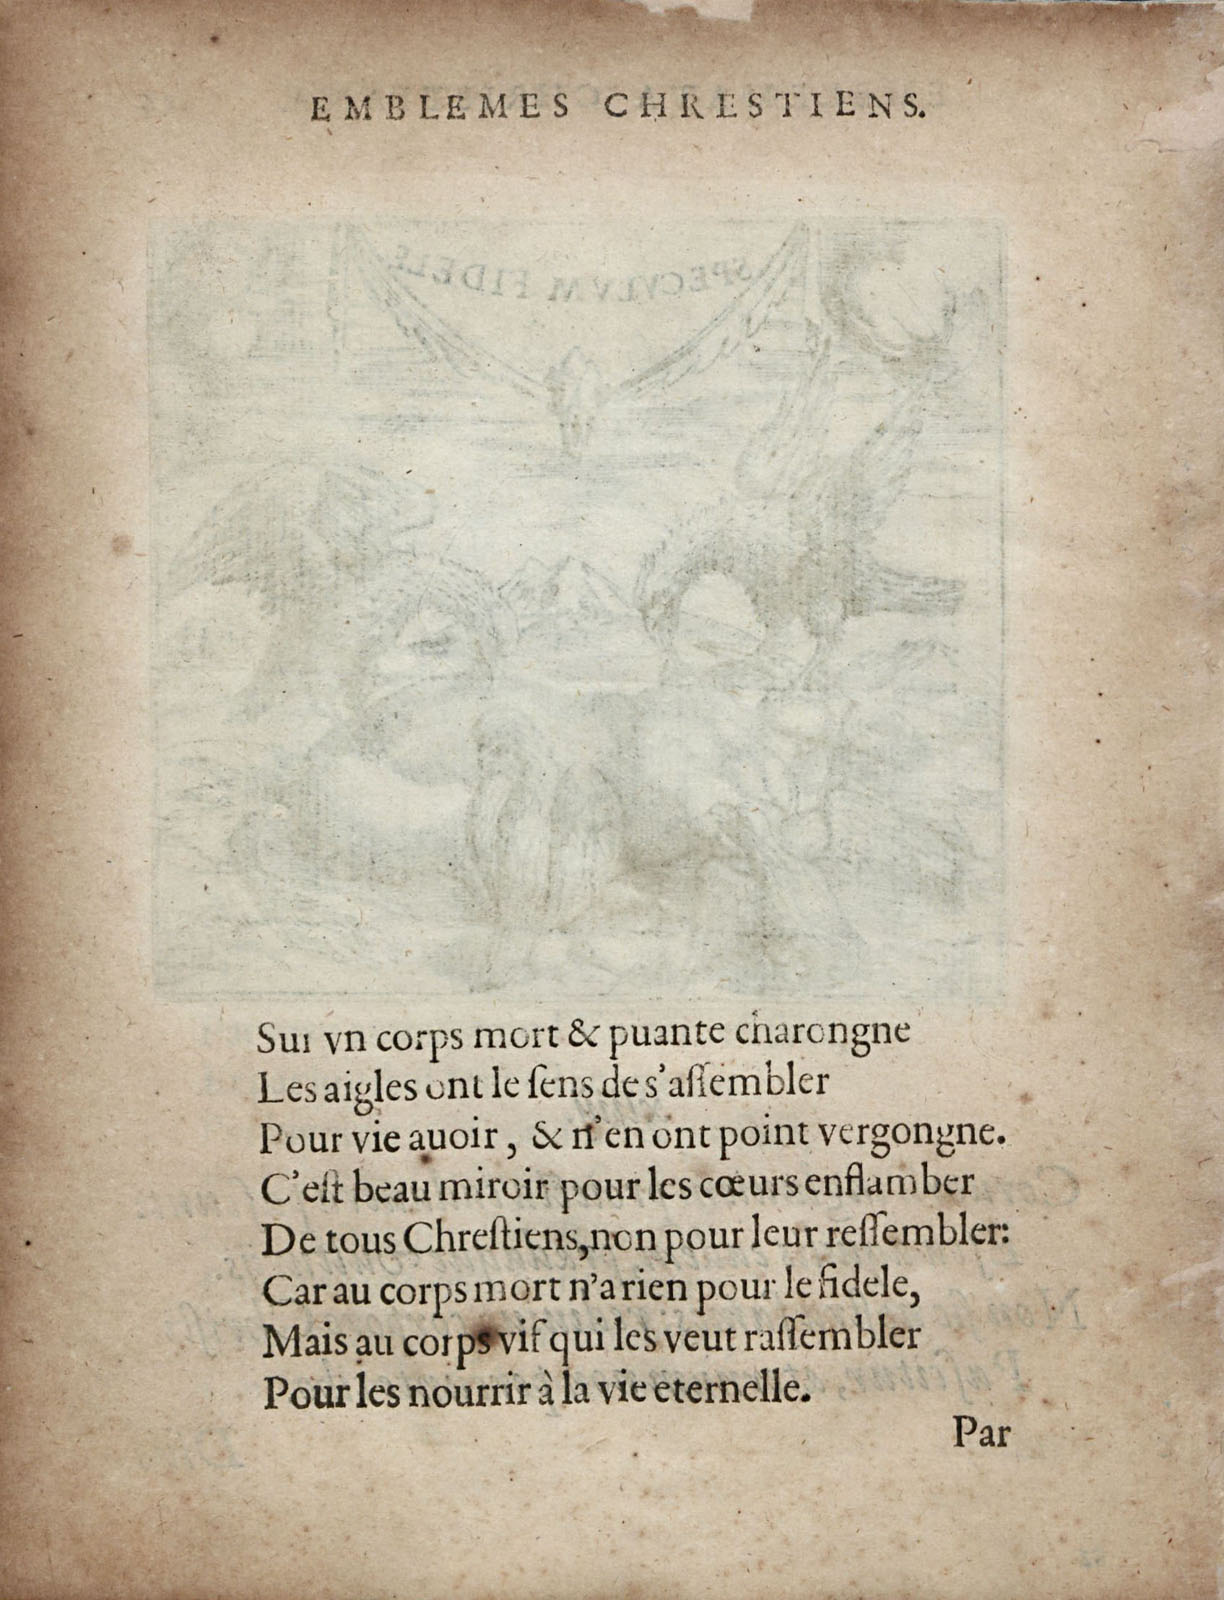 EMBLEMES CHRESTIENS.
SPECVLVM FIDELI
Sur vn corps mort & puante charongne
Les aigles ont le ſens de s'aſſembler
Pour vie auoir, & n'en ont point vergongne.
C'eſt beau miroir pour les cœurs enflamber
De tous Chreſtiens, non pour leur reſſembler:
Car au corps mort n'a rien pour le fidele,
Mais au corps vif qui les veut raſſembler
Pour les nourrir à la vie eternelle.
Par